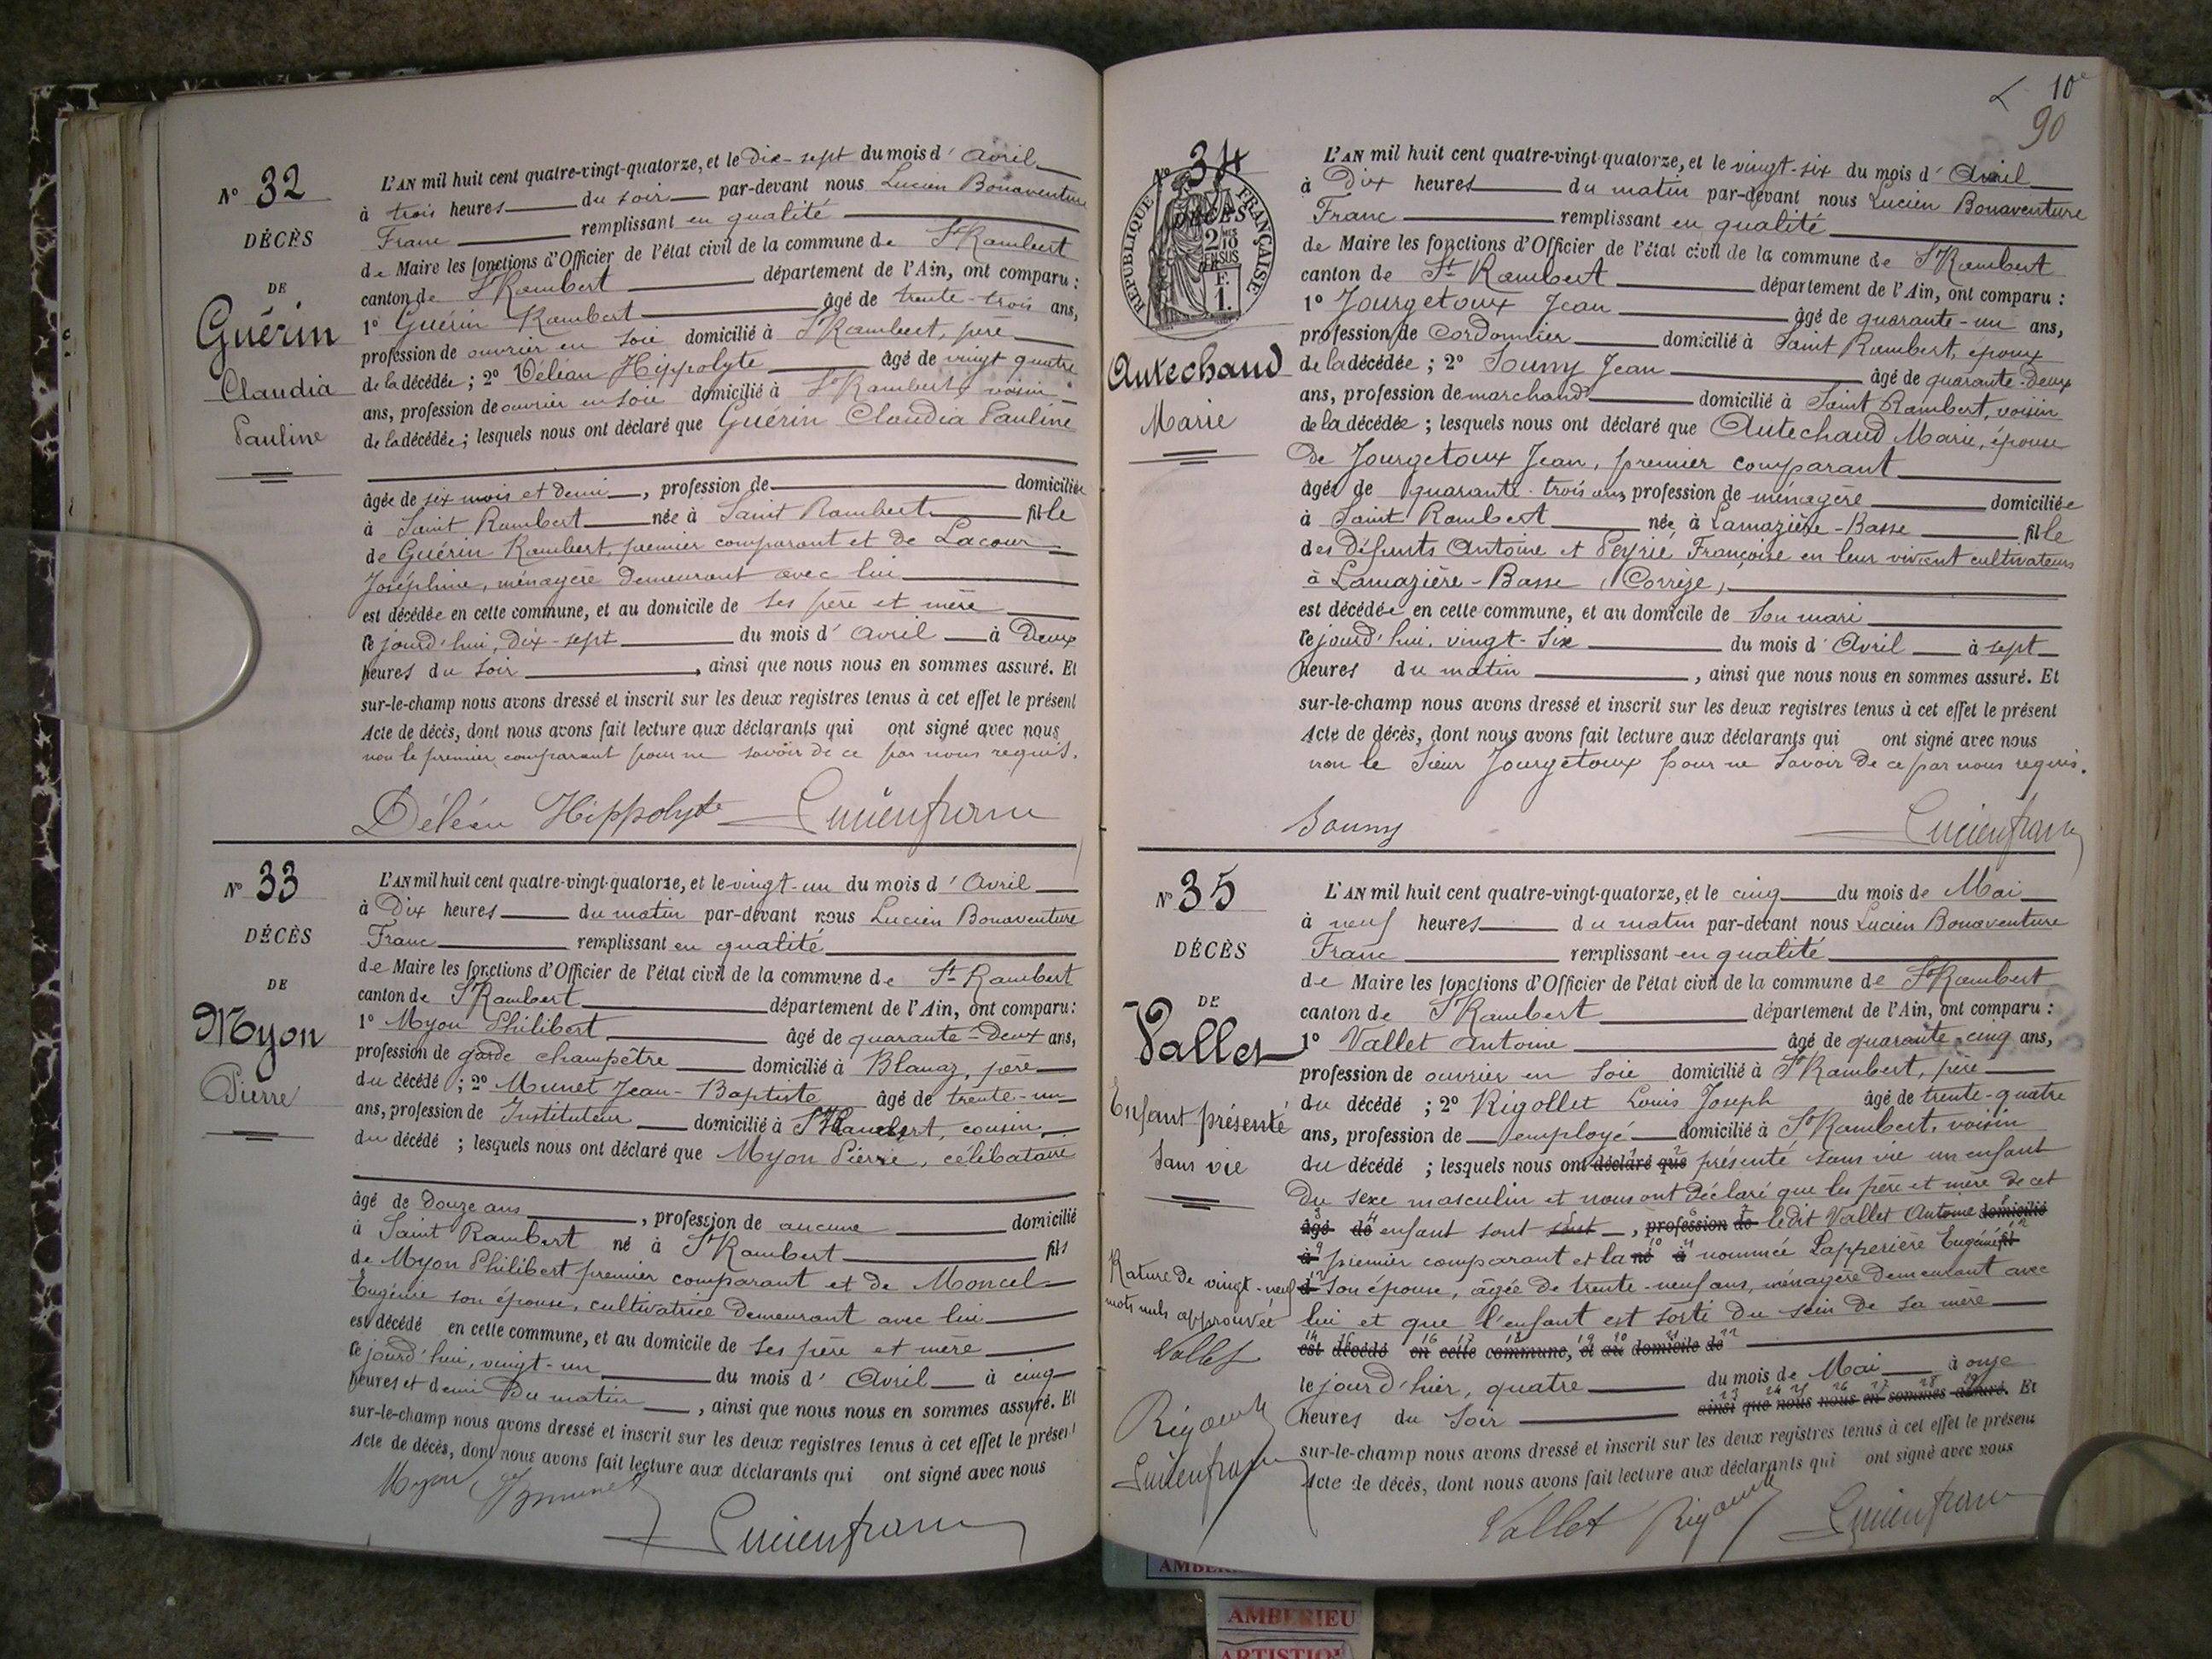 N° 32
DÉCÈS
DE
Guérin
Claudia
Pauline
L'AN mil huit cent quatre-vingt-quatorze, et le Dix-sept du mois d'avril
à trois heures du soir par-devant nous Lucien Bonaventure
Franc remplissant en qualité
de Maire les fonctions d'Officier de l'état civil de la commune de St Rambert
canton de St Rambert département de l'Ain, ont comparu :
1° Guérin Rambert âgé de trente-trois ans,
profession de ouvrier en soie domicilié à St Rambert, père
de la décédée ; 2° Déléan Hippolyte âgé de vingt quatre
ans, profession de ouvrier en soie domicilié à St Rambert, voisin
de la décédée ; lesquels nous ont déclaré que Guérin Claudia Pauline
âgée de six mois et demi, profession de domiciliée
à Saint Rambert née à Saint Rambert fille
de Guérin Rambert, premier comparant et de Lacour
Joséphine, ménagère demeurant avec lui
est décédée en cette commune, et au domicile de ses père et mère
ce jourd'hui, dix-sept du mois d'avril à Deux
heures du soir, ainsi que nous nous en sommes assuré. Et
sur-le-champ nous avons dressé et inscrit sur les deux registres tenus à cet effet le présent
Acte de décès, dont nous avons fait lecture aux déclarants qui ont signé avec nous
non le premier comparant pour ne savoir de ce par nous requis.
Déléan Hippolyte Lucien franc
N° 33
DÉCÈS
DE
Myon
Pierre
L'AN mil huit cent quatre-vingt-quatorze, et le vingt-un du mois d'Avril
à Dix heures du matin par-devant nous Lucien Bonaventure
Franc remplissant en qualité
de Maire les fonctions d'Officier de l'état civil de la commune de St Rambert
canton de St Rambert département de l'Ain, ont comparu :
1° Myon Philibert âgé de quarante-Deux ans,
profession de garde champêtre domicilié à Blanaz, père
du décédé ; 2° Munet Jean-Baptiste âgé de trente-un
ans, profession de Instituteur domicilié à St Rambert, cousin
du décédé ; lesquels nous ont déclaré que Myon Pierre, célibataire
âgé de Douze ans, profession de aucune domicilié
à Saint Rambert né à St Rambert fils
de Myon Philibert premier comparant et de Moncel
Eugénie son épouse, cultivatrice demeurant avec lui
est décédé en cette commune, et au domicile de ses père et mère
ce jourd'hui, vingt-un du mois d'Avril à cinq
heures et demi Du matin, ainsi que nous nous en sommes assuré. Et
sur-le-champ nous avons dressé et inscrit sur les deux registres tenus à cet effet le présent
Acte de décès, dont nous avons fait lecture aux déclarants qui ont signé avec nous
Myon Munet
Lucien franc
10e
90
N° 34
RÉPUBLIQUE FRANÇAISE
DÉCÈS
2/10 EN SUS
1 F.
Autechaud
Marie
L'AN mil huit cent quatre-vingt-quatorze, et le vingt-six du mois d'Avril
à Dix heures du matin par-devant nous Lucien Bonaventure
Franc remplissant en qualité
de Maire les fonctions d'Officier de l'état civil de la commune de St Rambert
canton de St Rambert département de l'Ain, ont comparu :
1° Jourgetoux Jean âgé de quarante-un ans,
profession de cordonnier domicilié à Saint Rambert, époux
de la décédée ; 2° Souny Jean âgé de quarante-Deux
ans, profession de marchand domicilié à Saint Rambert, voisin
de la décédée ; lesquels nous ont déclaré que Autechaud Marie, épouse
de Jourgetoux Jean, premier comparant
âgée de quarante-trois ans, profession de ménagère domiciliée
à Saint Rambert née à Lamazière-Basse fille
des Défunts Antoine et Peyrié Françoise en leur vivant cultivateurs
à Lamazière-Basse (Corrèze),
est décédée en cette commune, et au domicile de Son mari
ce jourd'hui, vingt-six du mois d'Avril à sept
heures du matin, ainsi que nous nous en sommes assuré. Et
sur-le-champ nous avons dressé et inscrit sur les deux registres tenus à cet effet le présent
Acte de décès, dont nous avons fait lecture aux déclarants qui ont signé avec nous
non le Sieur Jourgetoux pour ne savoir de ce par nous requis.
Souny Lucien franc
N° 35
DÉCÈS
DE
Vallet
Enfant présenté
Sans vie
Rature de vingt-neuf
mots nuls approuvée
Vallet
Lucien franc
L'AN mil huit cent quatre-vingt-quatorze, et le cinq du mois de Mai
à neuf heures du matin par-devant nous Lucien Bonaventure
Franc remplissant en qualité
de Maire les fonctions d'Officier de l'état civil de la commune de St Rambert
canton de St Rambert département de l'Ain, ont comparu :
1° Vallet Antoine âgé de quarante-cinq ans,
profession de ouvrier en soie domicilié à St Rambert, père
du décédé ; 2° Rigollet Louis Joseph âgé de trente-quatre
ans, profession de employé domicilié à St Rambert, voisin
du décédé ; lesquels nous ont déclaré que présenté sans vie un enfant
Du sexe masculin et nous ont déclaré que les père et mère de cet
âgé de enfant sont, profession de ledit Vallet Antoine domicilié
à premier comparant et la né à nommée Lapperière Eugénie fil
d Son épouse, âgée de trente-neuf ans, ménagère demeurant avec
lui et que l'enfant est sorti du sein de sa mère
est décédé en cette commune, et au domicile de
le jour d'hier, quatre du mois de Mai à onze
heures du Soir ainsi que nous nous en sommes assuré. Et
sur-le-champ nous avons dressé et inscrit sur les deux registres tenus à cet effet le présent
Acte de décès, dont nous avons fait lecture aux déclarants qui ont signé avec nous
Vallet Lucien franc
AMBERIEU